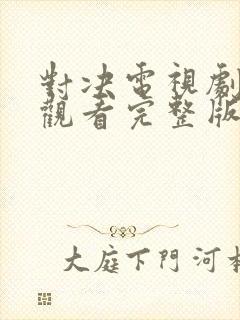 對决電視劇
觀看完整版
大庭下門河本